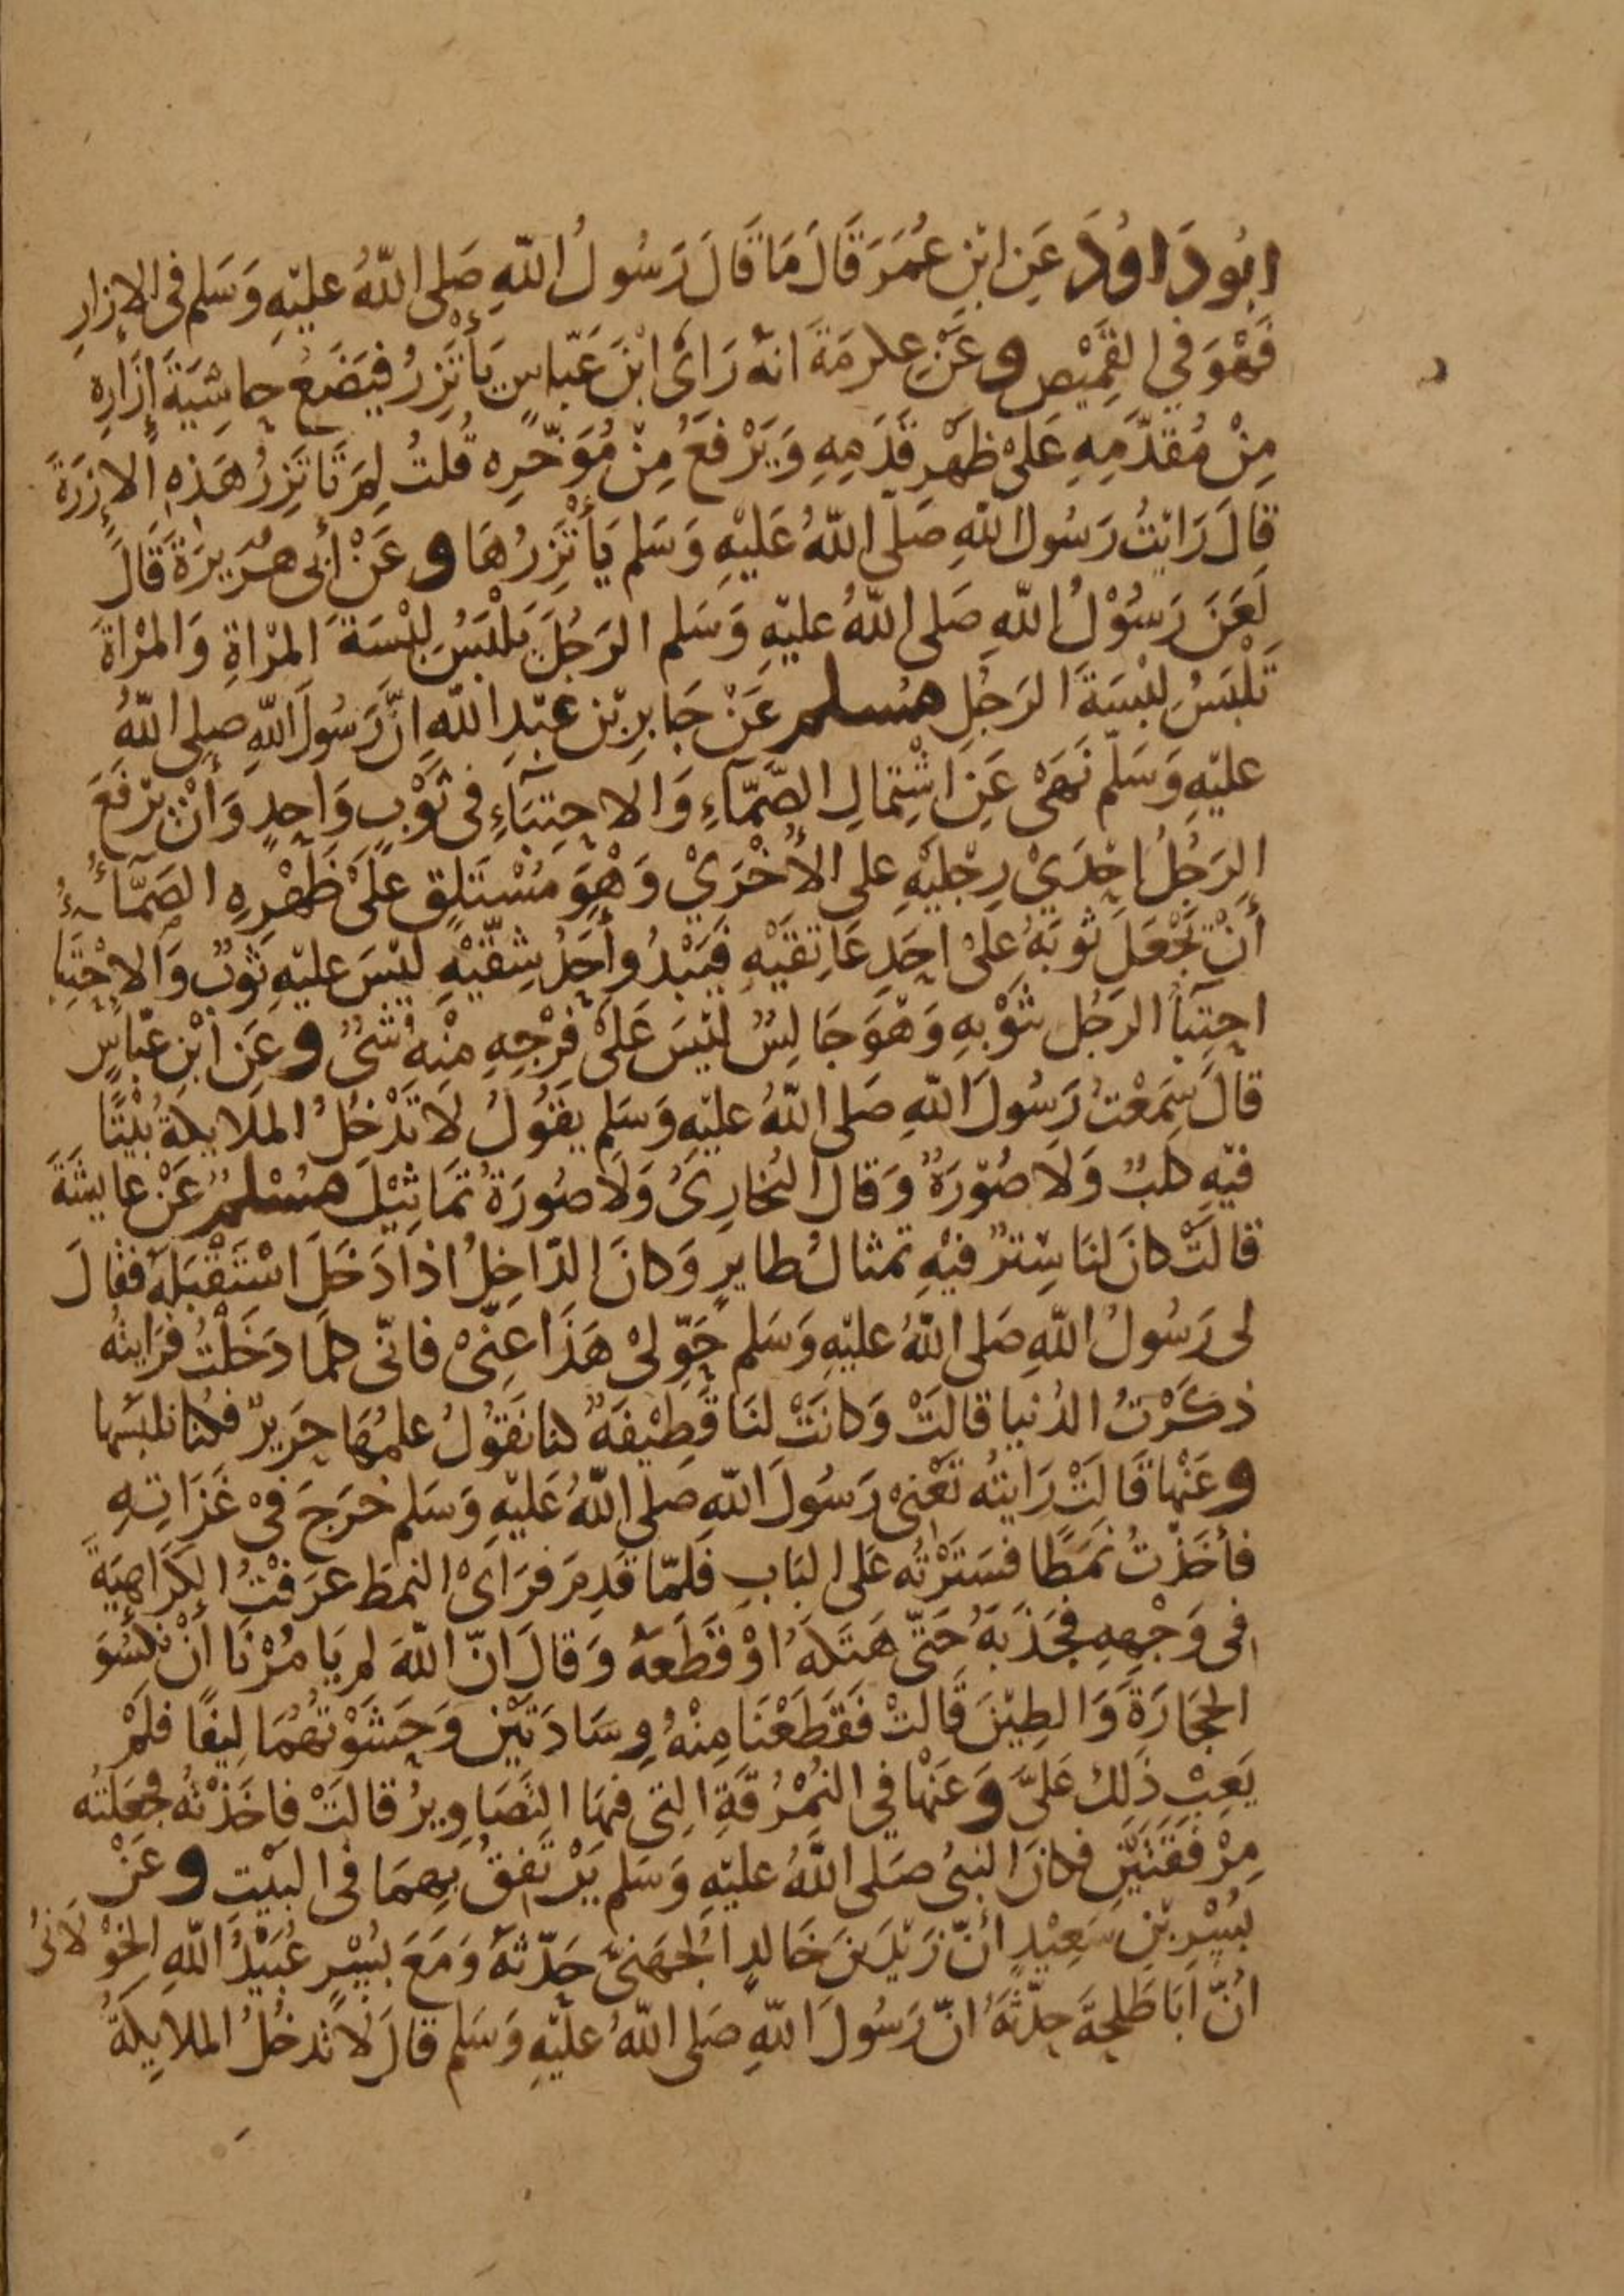 ابُو دَاوُدَ عَنِ ابْنِ عُمَرَ قَالَ مَا قَالَ رَسُولُ اللّٰهِ صَلى اللّٰهُ عليْهِ وَسَلم فى الإزارِ
فَهْوَ فِي القَمِيْصِ وعَنْ عِكرمَةَ انهُ رَاىَ ابْنَ عَبّاسٍ يَأْتَزِرُ فيَضَعُ حاشِيَةَ إزَارِه
مِنْ مُقدَّمِهِ عَلىْ ظهْرِ قَدَمِهِ وَيَرْفَعُ مِنْ مُوَخّرِه قُلتُ لِمَ تَاتَزِرُ هَذِهِ الإزرَةَ
قالَ رَايْتُ رَسُولَ اللّٰهِ صَلّى اللّٰهُ عَليْهِ وَسَلم يَأْتَزِرُهَا وعَنْ أبى هُرَيرَةَ قَالَ
لَعَنَ رَسُوْلُ اللّٰهِ صَلى اللّٰهُ عليْهِ وَسَلم الرَجُلَ يَلْبَسُ لِبْسَةَ المرْاةِ وَالمرْاةَ
تَلْبَسُ لِبْسَةَ الرَجُلِ مسلم عَنْ جَابرِ بْنِ عَبْدِ اللّٰهِ انَّ رَسُولَ اللّٰهِ صلى اللّٰهُ
عليْهِ وَسَلّم نَهَىْ عَنِ اشْتِمالِ الصَّمَّاءِ وَالاحِتبَاءِ فى ثَوْبٍ وَاحِدٍ وَأَنْ يرْفَعَ
الرَجُلُ احْدَيْ رِجْليْهِ على الأُخْرَيْ وَهْوَ مُسْتَلقٍ عَلىْ ظَهْرِهِ الصَمَّاءُ
أنْ تَجْعَلَ ثوبَهُ علىْ احَدِ عَاتِقَيْهِ فيَبْدُو أحَدُ شِقّيْهِ ليْسَ عليْهِ ثَوْبٌ وَالاحْتِبَا
احتِبَأ الرَجُلِ بثَوْبهِ وَهْوَ جَالِسٌ ليْسَ عَلىْ فرْجِهِ مِنْهُ شىْءٌ وعَنِ ابْنِ عَبّاسٍ
قالَ سَمِعْتُ رَسُولَ اللّٰهِ صَلى اللّٰهُ عليْهِ وَسَلم يقَوُلُ لاَ تَدْخُلُ الملايكةُ بَيْتًا
فيْهِ كلبٌ وَلا صُوْرَةٌ وَقال البُخارِىُ وَلاَ صُورَةُ تَمَاثِيْلَ مُسْلمٌ عَنْ عايشَةَ
قالَتْ كانَ لنَا سِتْرٌ فيْهِ تمثالُ طايرٍ وَكانَ الدّاخِلُ اذا دَخَلَ اسْتَقْبَلَهُ فقالَ
لى رَسُولُ اللّٰهِ صَلى اللّٰهُ عليْهِ وَسَلم حَوِّلىْ هَذَا عنِّىْ فانّى كلّما دَخَلْتُ فرَايتُه
ذكَرْتُ الدُنيا قالَتْ وَكانَتْ لنَا قَطِيْفَةٌ كنا نَقُولُ علمُهَا حَرِيرٌ فكُنا نلبَسُها
وعَنْها قَالَتْ رَايْتُه تَعْنِىْ رَسُولَ اللّٰهِ صَلى اللّٰهُ عَليْهِ وَسَلم خرَجَ فىْ غَزَاتِهِ
فأخَذتُ نَمَطًا فسَتَرْتُه عَلى البَابِ فَلمّا قَدِمَ فرَاىْ النمطَ عرَفْتُ الكَرَاهِيَةَ
فى وَجْهِهِ فجَذَبَهُ حَتّى هَتكهُ اوْ قَطَعَهُ وَقالَ انّ اللّٰهَ لم يَامُرْنَا أنْ نكسُوَ
الحِجَارَةَ وَالطِيْنَ قَالَتْ فَقطَعْنَا مِنْهُ وِسَادَتَيْن وَحَشَوْتُهُمَا ليفًا فلَمْ
يَعِبْ ذَلكَ عَليَّ وَعَنْها فِي النُمْرُقَةِ التى فيهَا التَصَاوِيرُ قالَتْ فاخَذْتُه فجَعَلتُه
مِرْفَقَتَيْنِ فكانَ النبىُ صَلى اللّٰهُ عليْهِ وَسَلم يَرْتَفِقُ بِهِمَا فى البَيْتِ وعَنْ
بُسْرِ بْنِ سَعِيْدٍ انّ زَيْدَ بنَ خَالدٍ الجُهَنىَّ حَدّثهُ وَمَعَ بُسْرٍ عُبَيْدُ اللّٰهِ الخَوْلاَنىُ
انّ ابَا طَلحَةَ حدّثَهُ انّ رَسُولَ اللّٰهِ صَلى اللّٰهُ عليْهِ وَسَلم قالَ لاَ تدخُلُ الملايِكةُ